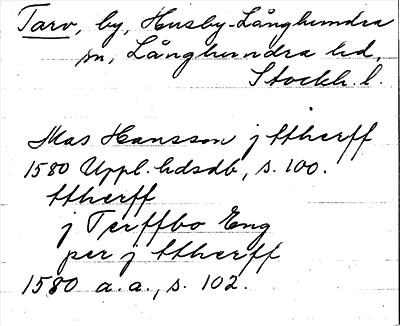 Tarv, by, Husby-Långhundra
sn, Långhundra hd,
Stockh. l.
Mas Hansson j ttherff
1580 Uppl. hdsdb, s. 100.
ttherff
j Terffbo Eng
per j ttherff
1580 a.a., s. 102.